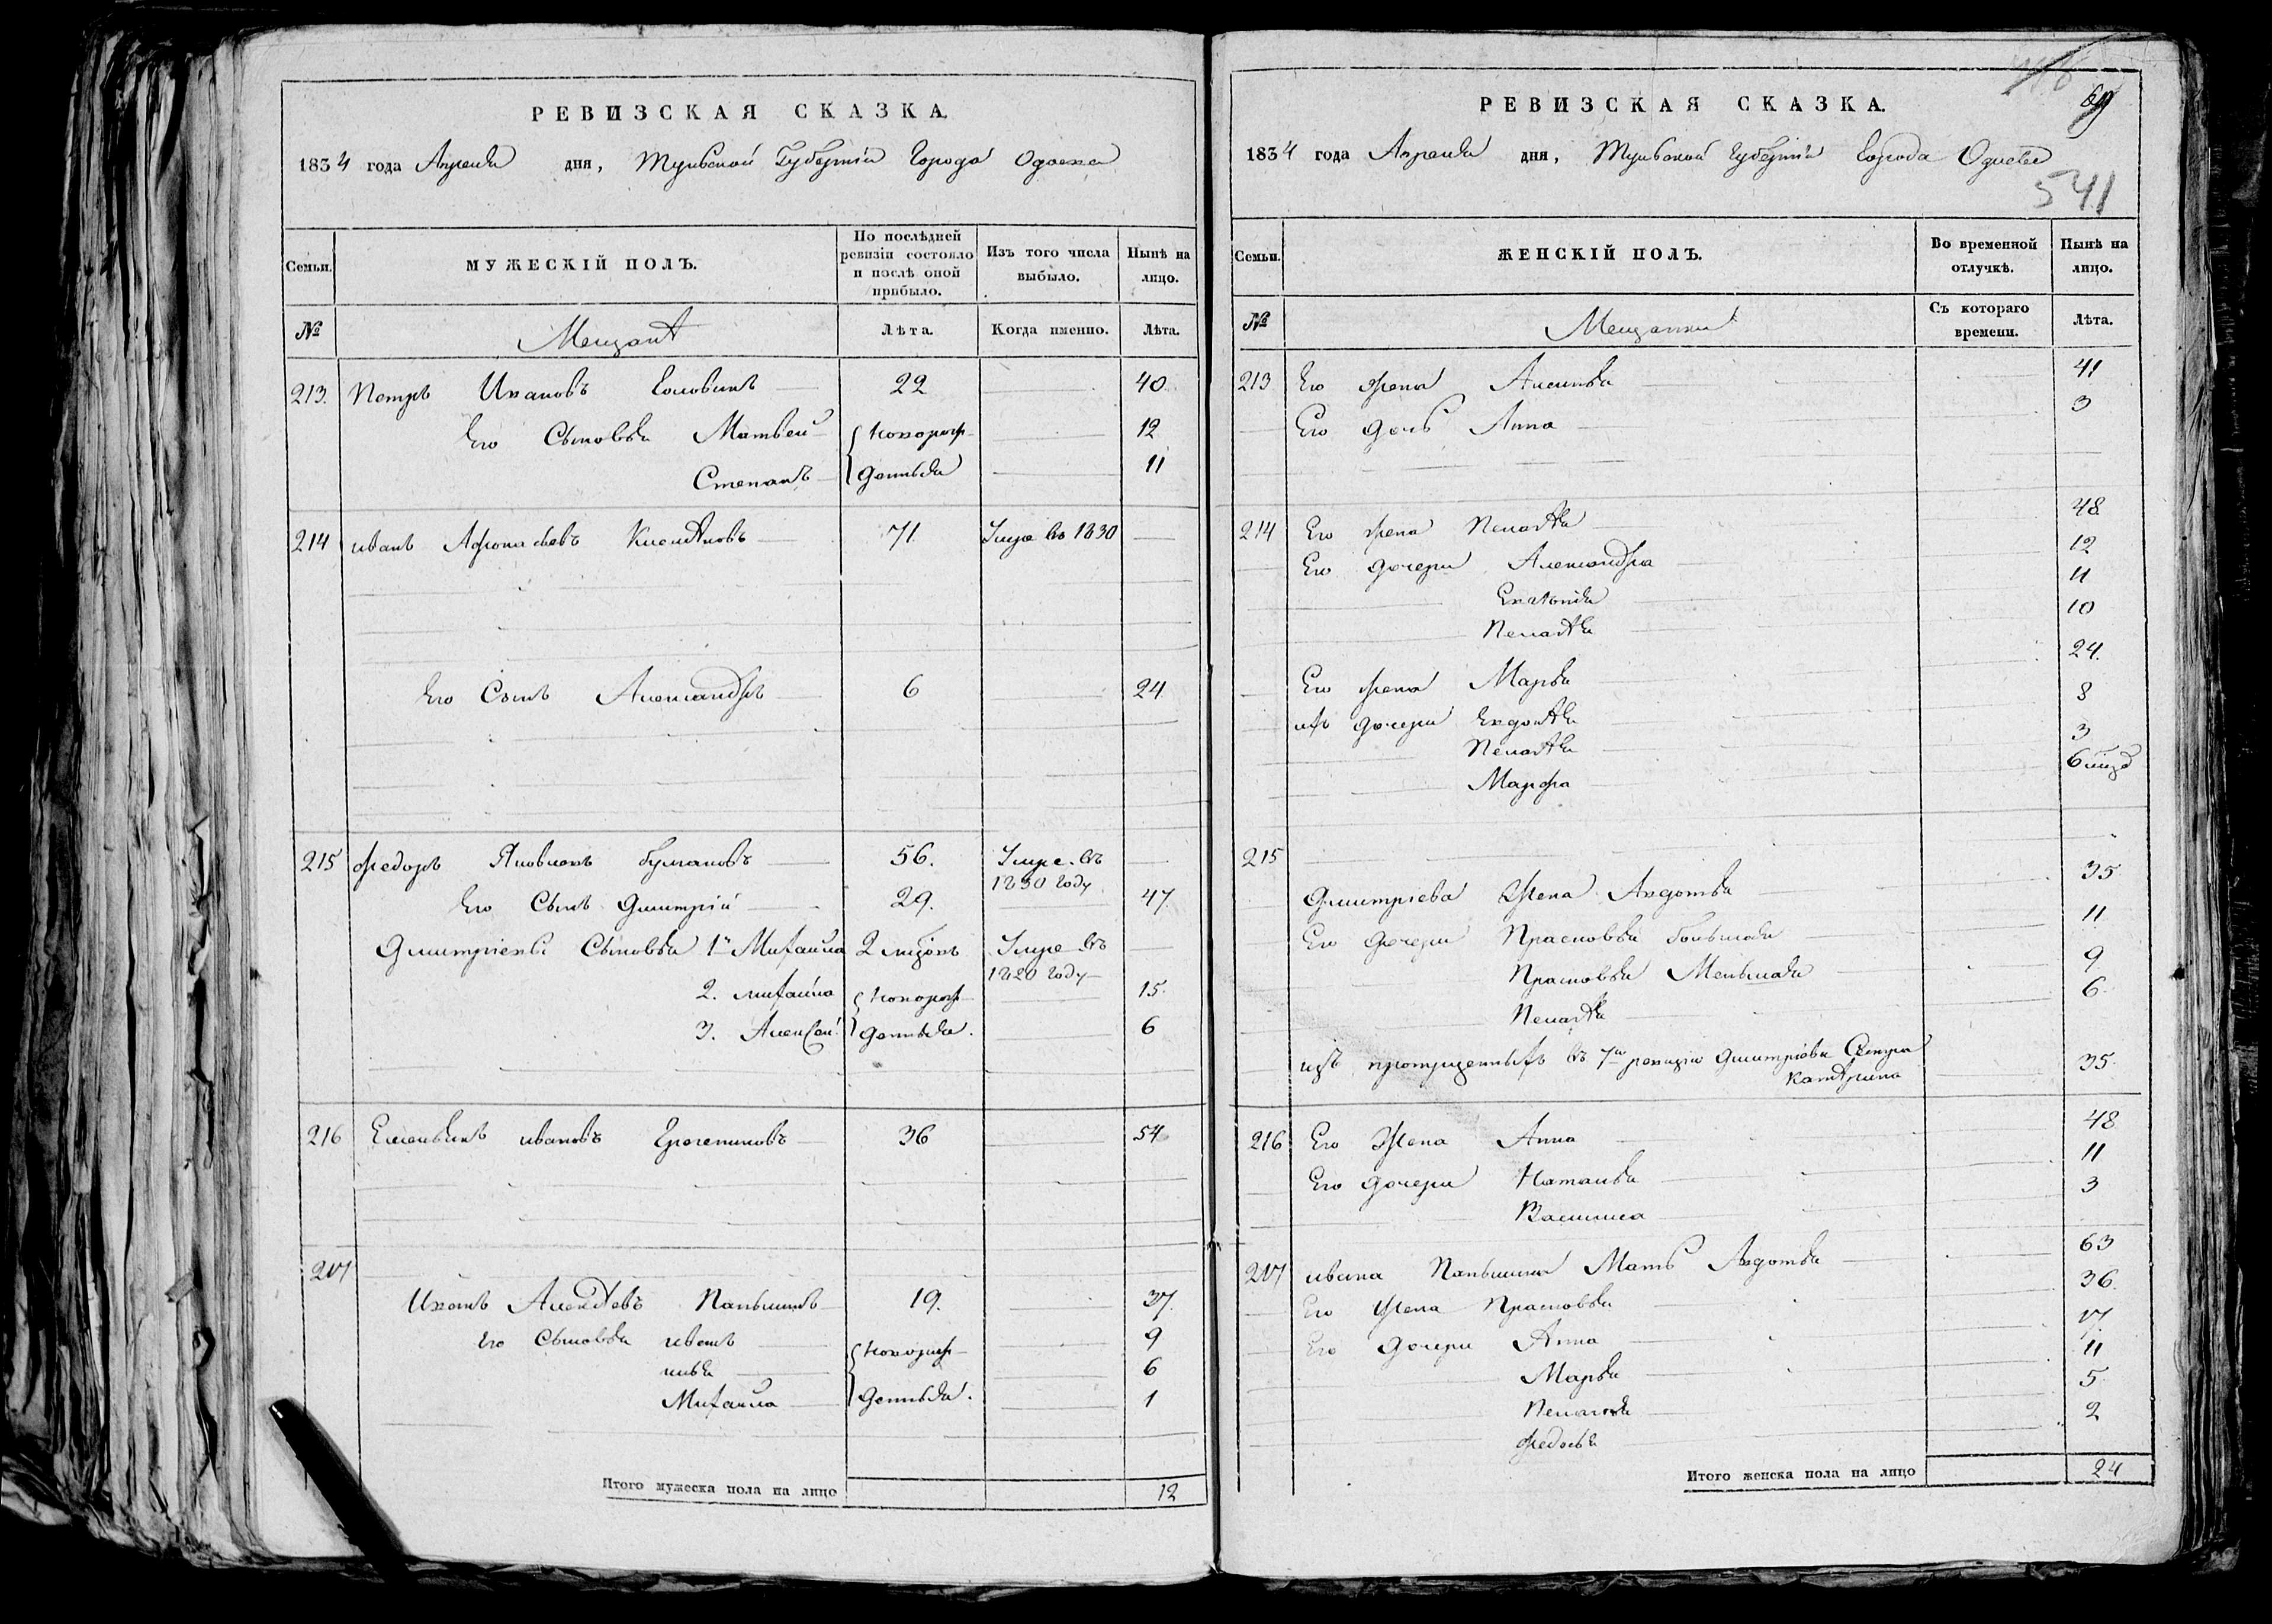 РЕВИЗСКАЯ СКАЗКА.
1834 года Апреля дня, Тульской Губернiи Города Одоева
Семьи.
МУЖЕСКIЙ ПОЛЪ.
По послѣдней ревизiи состояло и послѣ оной прибыло.
Изъ того числа выбыло.
Нынѣ на лицо.
№
Мещанъ
Лѣта.
Когда именно.
Лѣта.
213. Петръ Ивановъ 22 40.
Его Сыновья Матвей Новорож 12
Степанъ денныя 11
214 иванъ Афонасьевъ 71 Умре въ 1830
Его Сынъ Александръ 6 24
215 Федоръ Яковлевъ 56. Умре въ 1830 году
Его Сынъ Дмитрiй 29. 47
Дмитрiевы Сыновья 1й Михайла 2 Умре въ 1820 году
2. михайла Новорож 15.
3. Алексей денныя. 6
216 Емельянъ ивановъ 36 54
217
Иванъ Алексеевъ 19. 37.
Его Сыновья иванъ Новорож 9
илья 6
Михайла денныя. 1
Итого мужеска пола на лицо 12
РЕВИЗСКАЯ СКАЗКА.
1834 года Апреля дня, Тульской Губернiи Города Одоева
541
Семьи.
ЖЕНСКIЙ ПОЛЪ.
Во временной отлучкѣ.
Нынѣ на лицо.
№
Мещанки
Съ котораго времени.
Лѣта.
213 Его жена Аксинья 41
Его дочь Анна 3
214 Его жена Пелагея 48
Его дочери Александра 12
11
Пелагея 10
Его жена Марья 24.
ихъ дочери Евдокея 8
Пелагея 3
Марфа 6
215
Дмитрiева Жена Авдотья 35
Его Дочери Прасковья большая 11
Прасковья Меньшая 9
Пелагея 6.
изъ пропущенныхъ въ 7ю ревизiю Дмитрiева Сестра
Катерина 35.
216 Его Жена Анна 48
Его дочери Наталья 11
Василиса 3
217 ивана Мать Авдотья 63
Его Жена Прасковья 36.
Его дочери Анна 17
Марья 11
Пелагея 5
Федосья 2
Итого женска пола на лицо 24